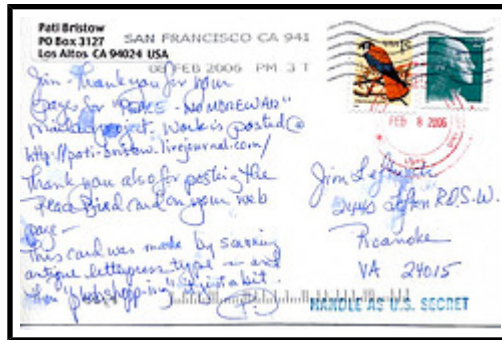 Pati Bristow
PO Box 3127
Los Altos CA 94024 USA
SAN FRANCISCO CA 941
08 FEB 2006 PM 3 T
FEB 8 2006
Jim - Thank you for your
pages for "PEACE - NO MORE WAR"
project. Work is posted @
http://pati-bristow.livejournal.com/
Thank you also for posting the
Peace Bird card on your web
page -
This card was made by scanning
antique letterpress type - and
then "photoshop-ing" just a bit.
Jim Leftwich
Roanoke
VA 24015
HANDLE AS U.S. SECRET